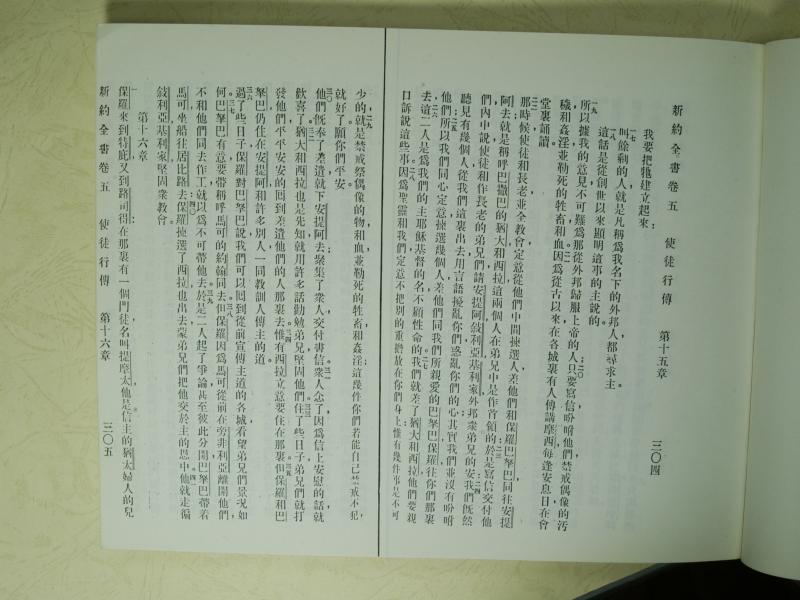 新約全書卷五 使徒行傳 第十五章 三〇四
我要把牠建立起來
一七叫餘剩的人就是凡稱爲我名下的外邦人都尋求主
一八這話是從創世以來顯明這事的主說的
一九所以據我的意見不可難爲那從外邦歸服上帝的人二〇只要寫信吩咐他們禁戒偶像的汚
穢和姦淫並勒死的牲畜和血二一因爲從古以來在各城裏有人傳講摩西每逢安息日在會
堂裏誦讀
二二那時候使徒和長老並全教會定意從他們中間揀選人差他們和保羅巴拏巴同往安提
阿去就是稱呼巴撒巴的猶大和西拉這兩個人在弟兄中是作首領的二三於是寫信交付他
們內中說使徒和作長老的弟兄們請安提阿敍利亞基利家外邦衆弟兄的安二四我們既然
聽見有幾個人從我們這裏出去用言語擾亂你們惑亂你們的心其實我們並沒有吩咐
他們二五所以我們同心定意揀選幾個人差他們同我們所親愛的巴拏巴保羅往你們那裏
去二六這二人是爲我們的主耶穌基督的名不顧性命的二七我們就差了猶大和西拉他們要親
口訴說這些事二八因爲聖靈和我們定意不把別的重擔放在你們身上惟有幾件事是不可
少的二九就是禁戒祭偶像的物和血並勒死的牲畜和姦淫這幾件你們若能自己禁戒不犯
就好了願你們平安
三〇他們既奉了差遣就下安提阿去聚集了衆人交付書信三一衆人念了因爲信上安慰的話就
歡喜了三二猶大和西拉也是先知就用許多話勸勉弟兄堅固他們三三住了些日子弟兄們就打
發他們平平安安的囘到差遣他們的人那裏去三四惟有西拉立意要住在那裏三五但保羅和巴
拏巴仍住在安提阿和許多別人一同教訓人傳主的道
三六過了些日子保羅對巴拏巴說我們可以囘到從前宣傳主道的各城看望弟兄們景況如
何三七巴拏巴有意要帶稱呼馬可的約翰同去三八但保羅因爲馬可從前在旁非利亞離開他們
不和他們同去作工就以爲不可帶他去三九於是二人起了爭論甚至彼此分開巴拏巴帶着
馬可坐船往居比路去四〇保羅揀選了西拉也出去蒙弟兄們把他交於主的恩中四一他就走徧
敍利亞基利家堅固衆教會
第十六章
一保羅來到特庇又到路司得在那裏有一個門徒名叫提摩太他是信主的猶太婦人的兒
新約全書卷五 使徒行傳 第十六章 三〇五